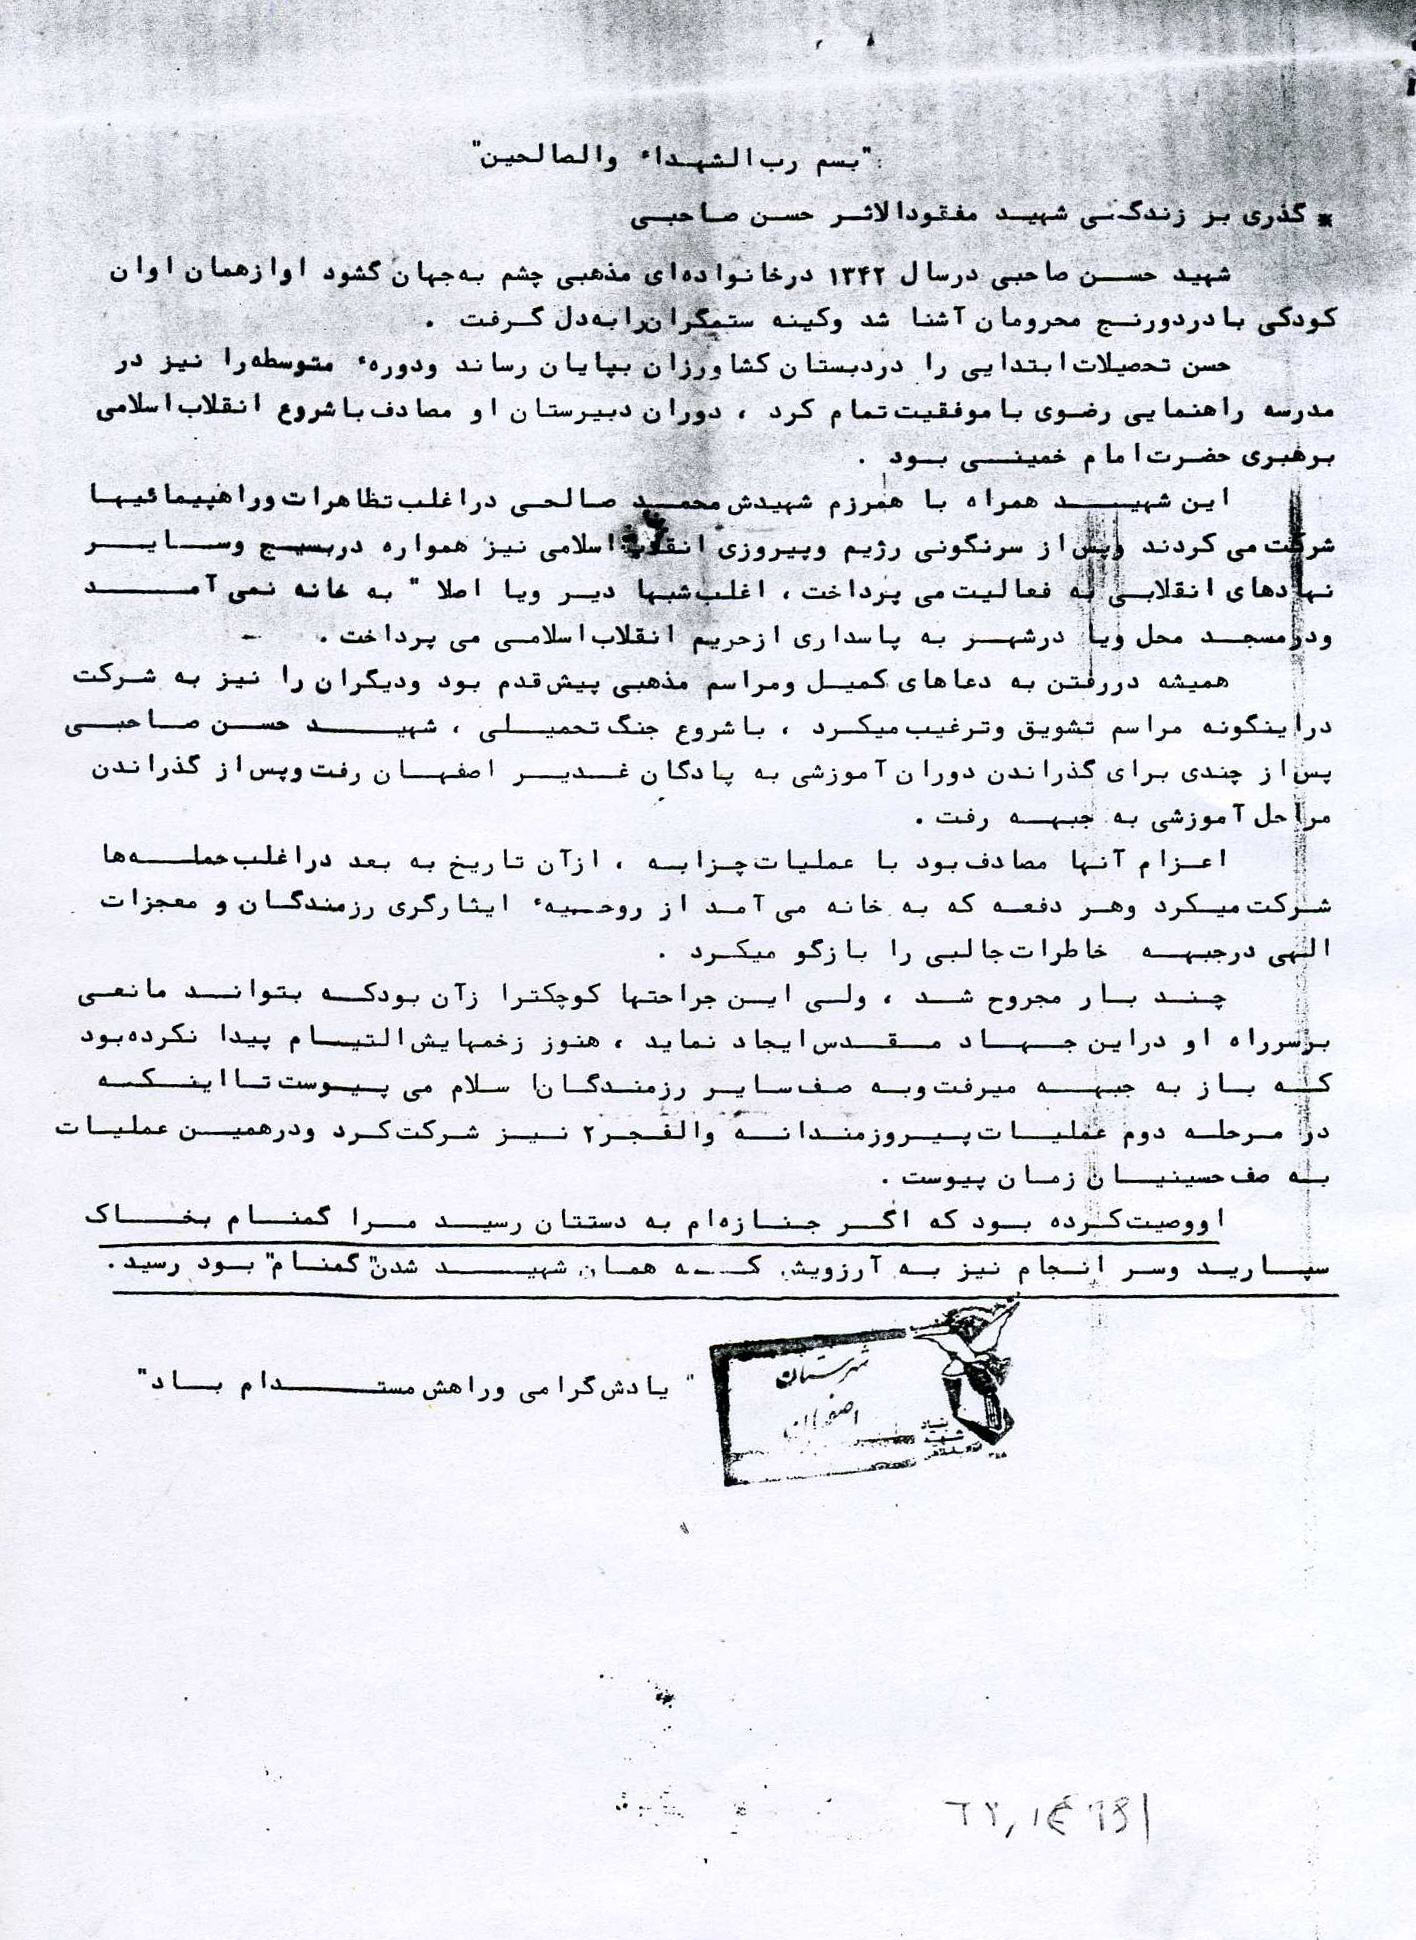 "بسم رب الشهداء والصالحین"
* گذری بر زندگی شهید مفقودالاثر حسن صاحبی
شهید حسن صاحبی درسال ۱۳۴۲ درخانواده‌ای مذهبی چشم به‌جهان گشود اوازهمان اوان
کودکی بادردورنج محرومان آشنا شد وکینه ستمگران‌رابه‌دل گرفت .
حسن تحصیلات‌ابتدایی را دردبستان کشاورزان بپایان رساند ودورهء متوسطه‌را نیز در
مدرسه راهنمایی رضوی باموفقیت‌تمام کرد ، دوران دبیرستان او مصادف‌باشروع انقلاب‌اسلامی
برهبری حضرت‌امام خمینی بود .
این شهید همراه با همرزم شهیدش محمد صالحی دراغلب‌تظاهرات‌وراهپیمائیها
شرکت‌می کردند وپس‌از سرنگونی رژیم وپیروزی انقلاب‌اسلامی نیز همواره دربسیج وسایر
نهادهای انقلابی به فعالیت‌می پرداخت ، اغلب‌شبها دیر ویا اصلا " به خانه نمی آمد
ودرمسجد محل ویا درشهر به پاسداری ازحریم انقلاب‌اسلامی می پرداخت .
همیشه دررفتن به دعاهای کمیل ومراسم مذهبی پیش‌قدم بود ودیگران را نیز به شرکت
دراینگونه مراسم تشویق وترغیب‌میکرد ، باشروع جنگ‌تحمیلی ، شهید حسن صاحبی
پس‌از چندی برای گذراندن دوران آموزشی به پادگان غدیر اصفهان رفت‌وپس‌از گذراندن
مراحل آموزشی به جبهه رفت .
اعزام آنها مصادف‌بود با عملیات‌چزابه ، ازآن تاریخ به بعد دراغلب‌حمله‌ها
شرکت‌میکرد وهر دفعه که به خانه می آمد از روحیهء ایثارگری رزمندگان و معجزات
الهی درجبهه خاطرات‌جالبی را بازگو میکرد .
چند بار مجروح شد ، ولی این جراحتها کوچکتراز آن بودکه بتواند مانعی
برسرراه او دراین جهاد مقدس‌ایجاد نماید ، هنوز زخمهایش‌التیام پیدا نکرده‌بود
که باز به جبهه میرفت‌وبه صف‌سایر رزمندگان اسلام می پیوست‌تااینکه
در مرحله دوم عملیات‌پیروزمندانه والفجر۲ نیز شرکت‌کرد ودرهمین عملیات
به صف‌حسینیان زمان پیوست .
اووصیت‌کرده بود که اگر جنازه‌ام به دستتان رسید مرا گمنام بخاک
سپارید وسر انجام نیز به آرزویش که همان شهید شدن"گمنام" بود رسید.
شهرستان
اصفهان
بنیاد
شهید
" یادش‌گرامی وراهش‌مستدام باد"